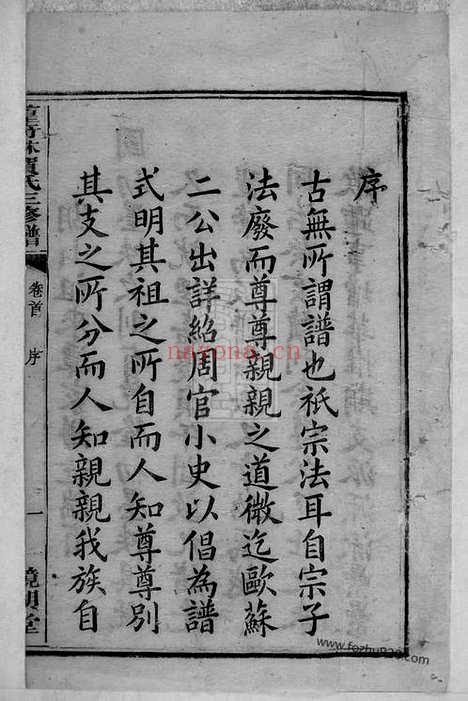 序
古無所謂譜也祇宗法耳自宗子
法廢而尊尊親親之道微迄歐蘇
二公出詳紹周官小史以倡為譜
式明其祖之所自而人知尊尊別
其支之所分而人知親親我族自
賈氏三修譜
卷首 序
一
nayona.cn